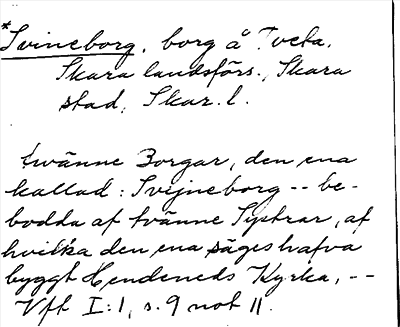 *Svineborg, borg å Tveta,
Skara landsförs., Skara
stad, Skar. l.
tvänne Borgar, den ena
kallad: Svijneborg -- be-
bodda af tvänne Systrar, af
hvilka den ena säges hafva
byggt Hendeneds Kyrka, --
Vft I:1, s. 9 not 11.